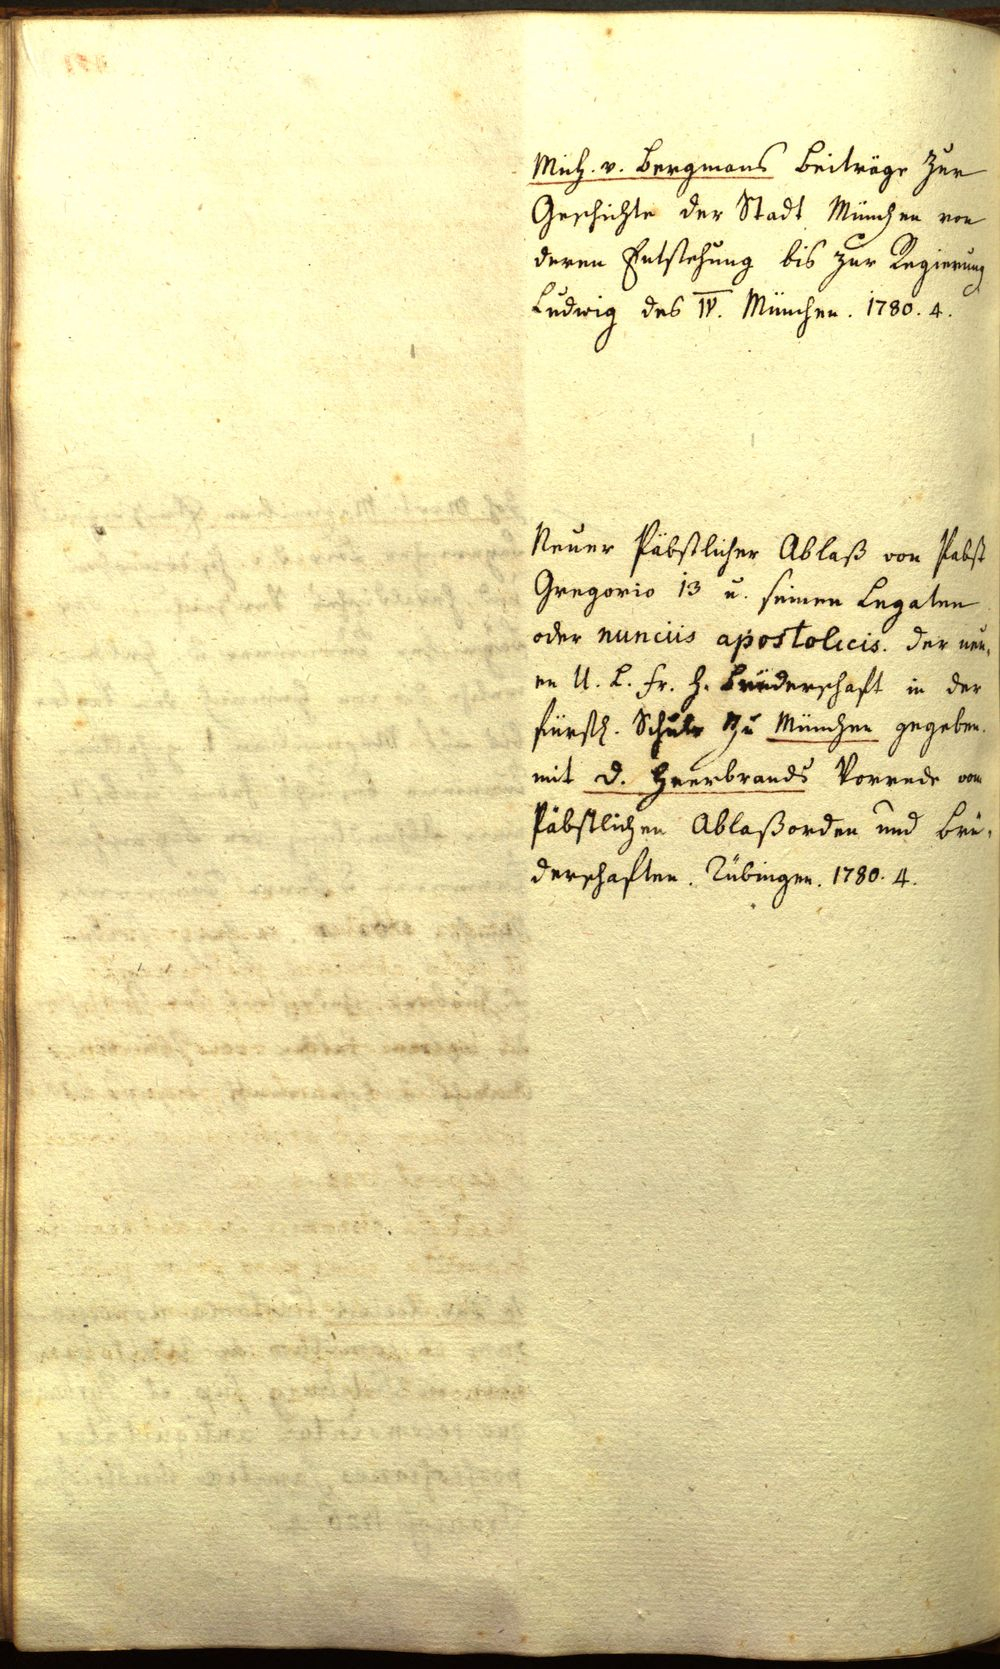 Mich. v. Bergmans Beiträge zur
Geschichte der Stadt München von
deren Entstehung bis zur Regierung
Ludwig des IV. München. 1780. 4.
Neuer Päbstlicher Ablaß von Pabst
Gregorio 13 u. seinen Legaten
oder nunciis apostolicis. der neu-
en U. L. Fr. H. Brüderschaft in der
fürstl. Schule zu München gegeben.
mit D. Heerbrands Vorrede vom
Päbstlichen Ablaßorden und Brü-
derschaften. Tübingen. 1780. 4.